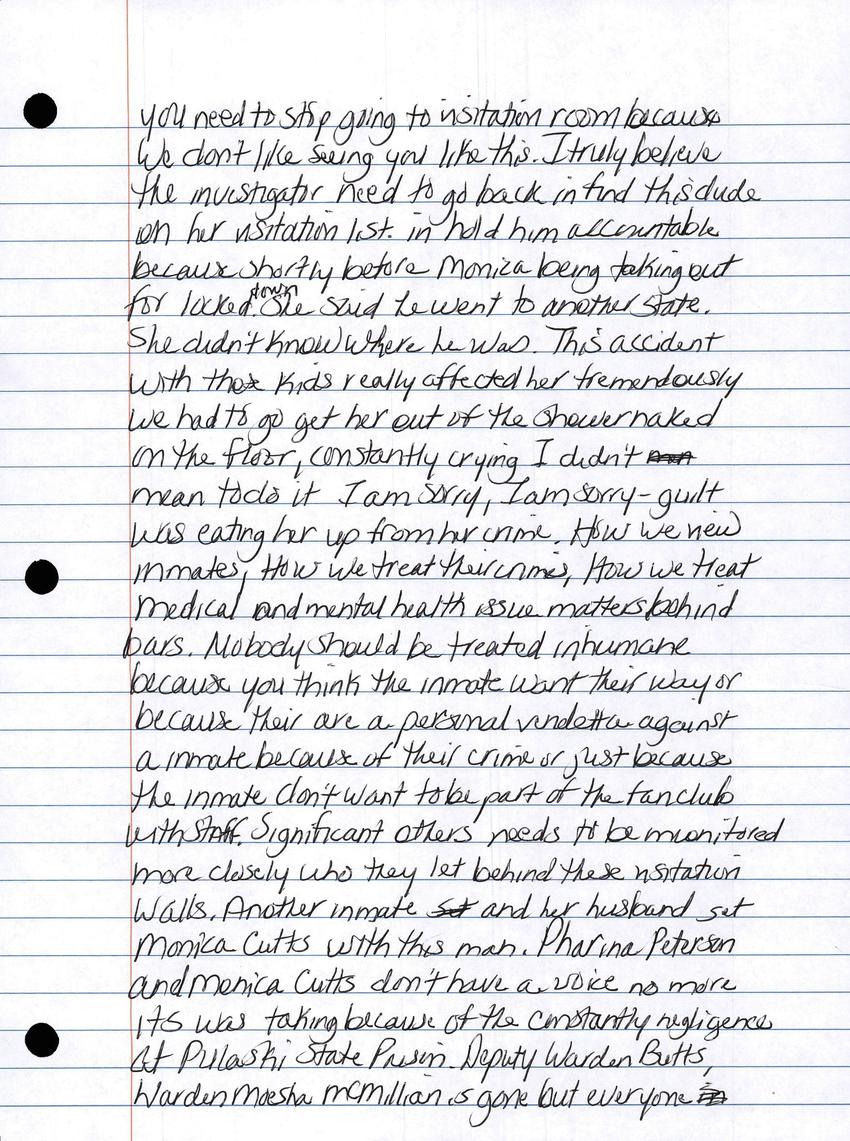 you need to stop going to visitation room because
we don't like seeing you like this. I truly believe
the investigator need to go back in find this dude
on her visitation list. in hold him accountable
because shortly before Monica being taking out
for locked down. She said he went to another state.
She didn't know where he was. This accident
with those kids really affected her tremendously
we had to go get her out of the shower naked
on the floor, constantly crying I didn't
mean to do it I am sorry, I am sorry - guilt
was eating her up from her crime. How we view
inmates, How we treat their crimes, How we treat
medical and mental health issue matters behind
bars. Nobody should be treated inhumane
because you think the inmate want their way or
because their are a personal vendetta against
a inmate because of their crime or just because
the inmate don't want to be part of the fanclub
with staff. Significant others needs to be monitored
more closely who they let behind these visitation
walls. Another inmate and her husband set
Monica Cutts with this man. Pharina Peterson
and Monica Cutts don't have a voice no more
its was taking because of the constantly negligence
at Pulaski State Prison. Deputy Warden Butts,
Warden Maesha McMillian is gone but everyone